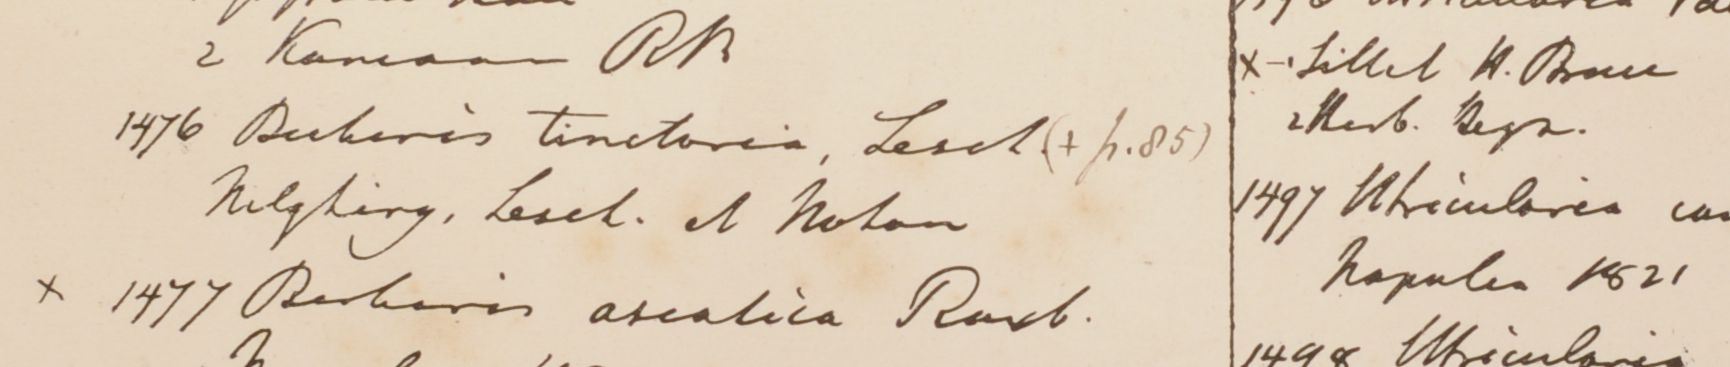 2 Kamaon RB
1476 Berberis tinctoria, Lesch (+ p. 85)
Nilghiry, Lesch. et Noton
x 1477 Berberis asiatica Roxb.
x - 1 Sillet H. Bruce
2 Herb. Regn.
1497 Utricularia
Napalia 1821
1498 Utricularia